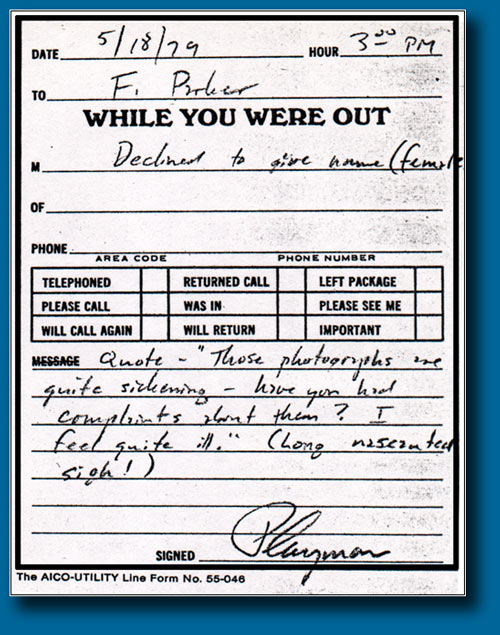 DATE 5/18/79 HOUR 3:00 PM
TO F. Parker
WHILE YOU WERE OUT
M Declined to give name (female
OF
PHONE
AREA CODE PHONE NUMBER
TELEPHONED RETURNED CALL LEFT PACKAGE
PLEASE CALL WAS IN PLEASE SEE ME
WILL CALL AGAIN WILL RETURN IMPORTANT
MESSAGE Quote - "Those photographs are
quite sickening - have you had
complaints about them? I
feel quite ill." (Long
sigh!)
SIGNED
The AICO-UTILITY Line Form No. 55-046